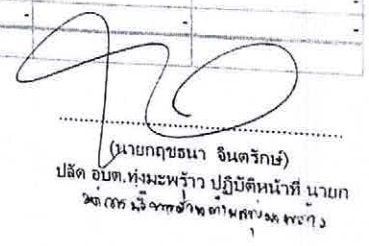 (นายกฤชธนา จินตรักษ์)
ปลัด อบต.ทุ่งมะพร้าว ปฏิบัติหน้าที่ นายก
องค์การบริหารส่วนตำบลทุ่งมะพร้าว